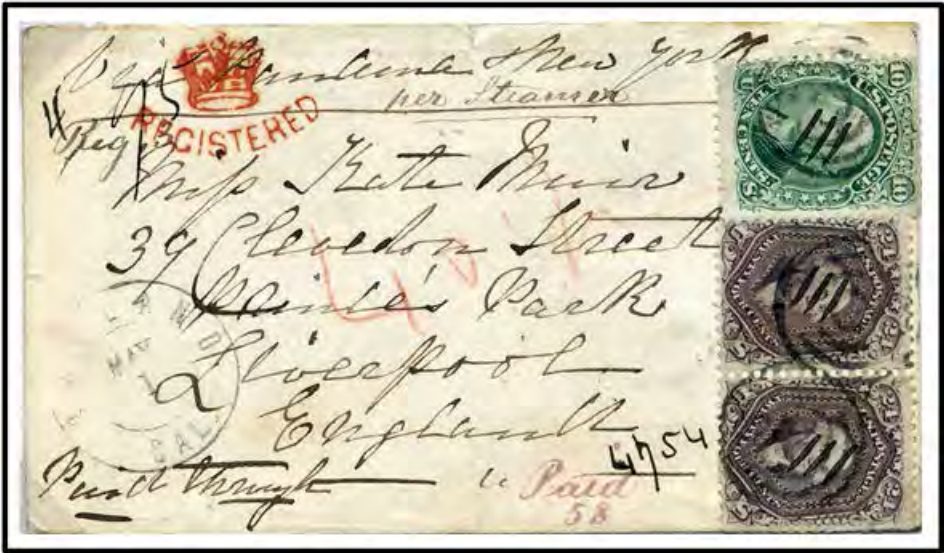 Via Panama & New York
per Steamer
REGISTERED
Miss Kate Muir
39 Clevedon Street
Prince's Park
Liverpool
England
Paid through
Paid
58
4754
CAL.
MAY
1
U.S. POSTAGE
TEN CENTS